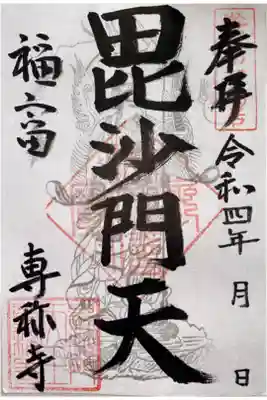 奉拝 令和四年 月 日
毘沙門天
福富
専称寺